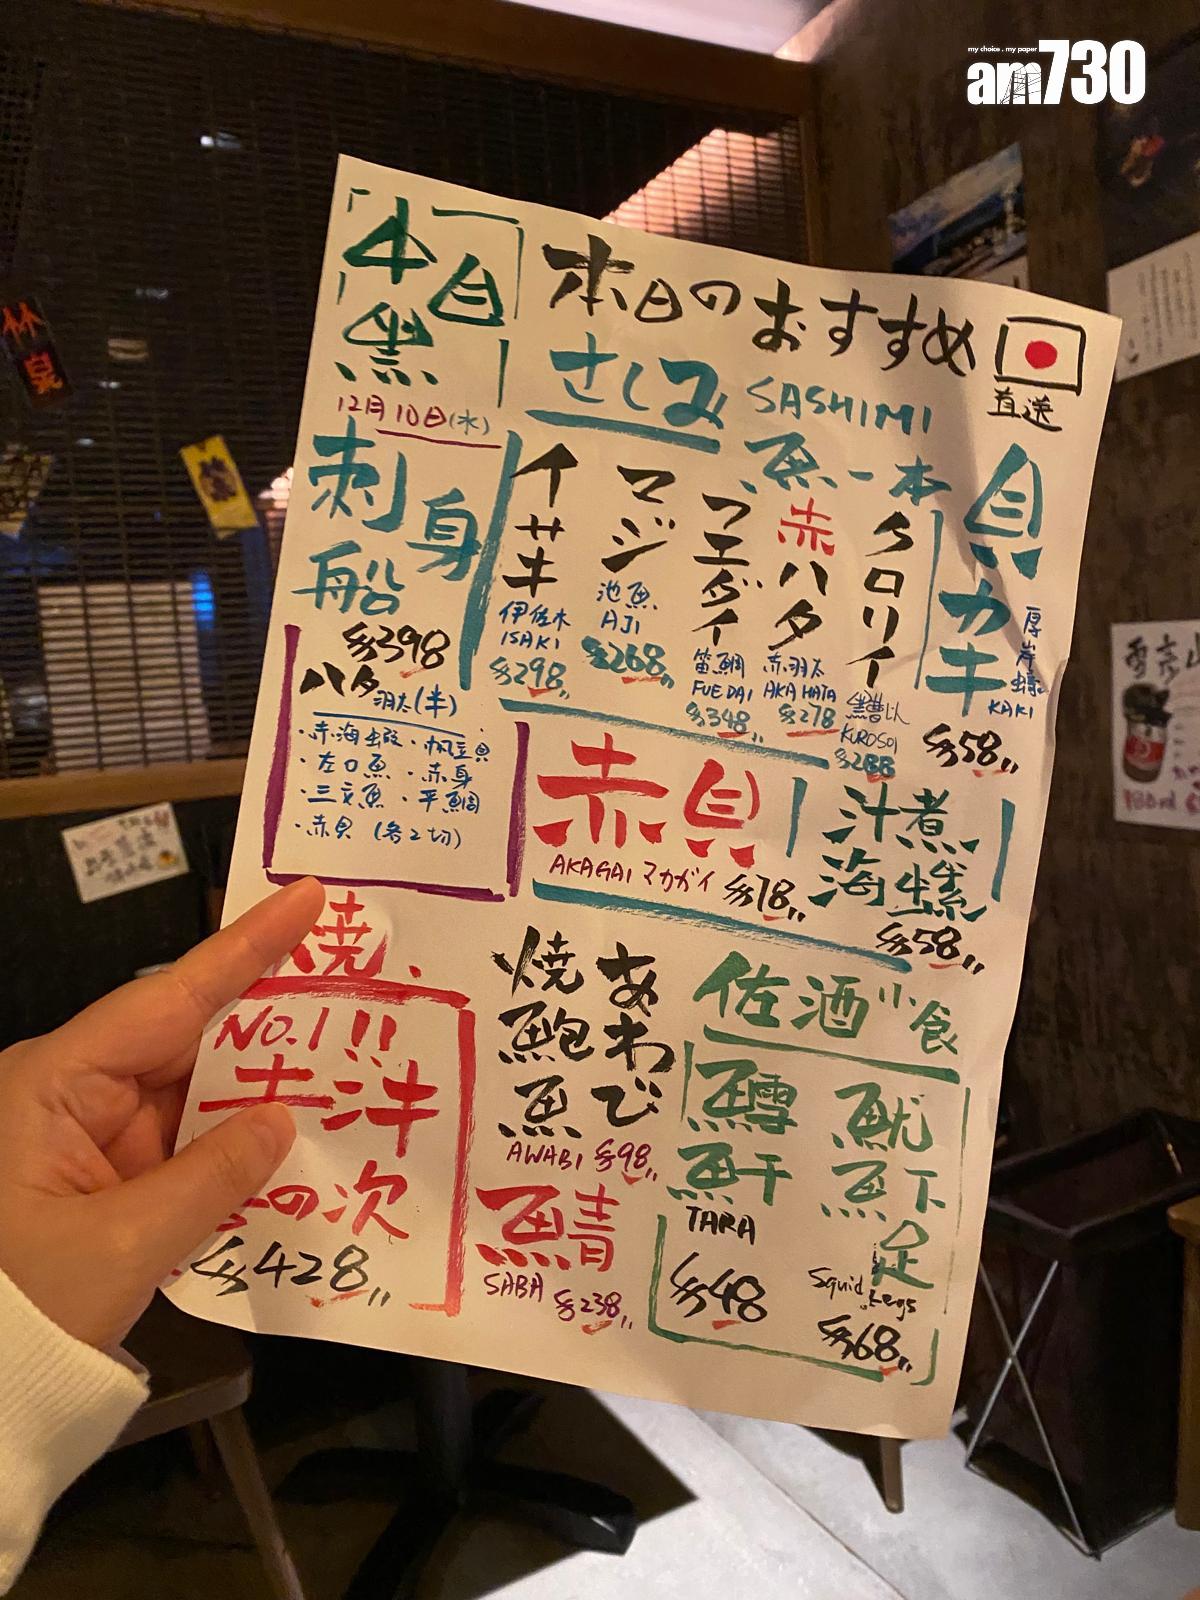 my choice . my paper
am730
本日のおすすめ
直送
12月10日(水)
さしみ SASHIMI
魚一本
刺身
船
$398
ハタ 羽太(半)
・赤海蝦・帆立貝
・左口魚・赤身
・三文魚・平鯛
・赤貝(各2切)
イサキ
伊佐木
ISAKI
$298
マジ
池魚
AJI
$268
フエダイ
笛鯛
FUEDAI
$348
赤ハタ
赤羽太
AKAHATA
$278
クロソイ
KUROSOI
$288
貝
カキ
厚岸蠔
KAKI
$58
赤貝
AKAGAI アカガイ
$78
汁煮
海螺
$58
焼
NO.1!!
の次
$428
焼鮑魚
あわび
AWABI $98
鯖
SABA
$238
佐酒小食
鱈魚干
TARA
$48
魷魚下足
Squid Legs
$68
竹泉